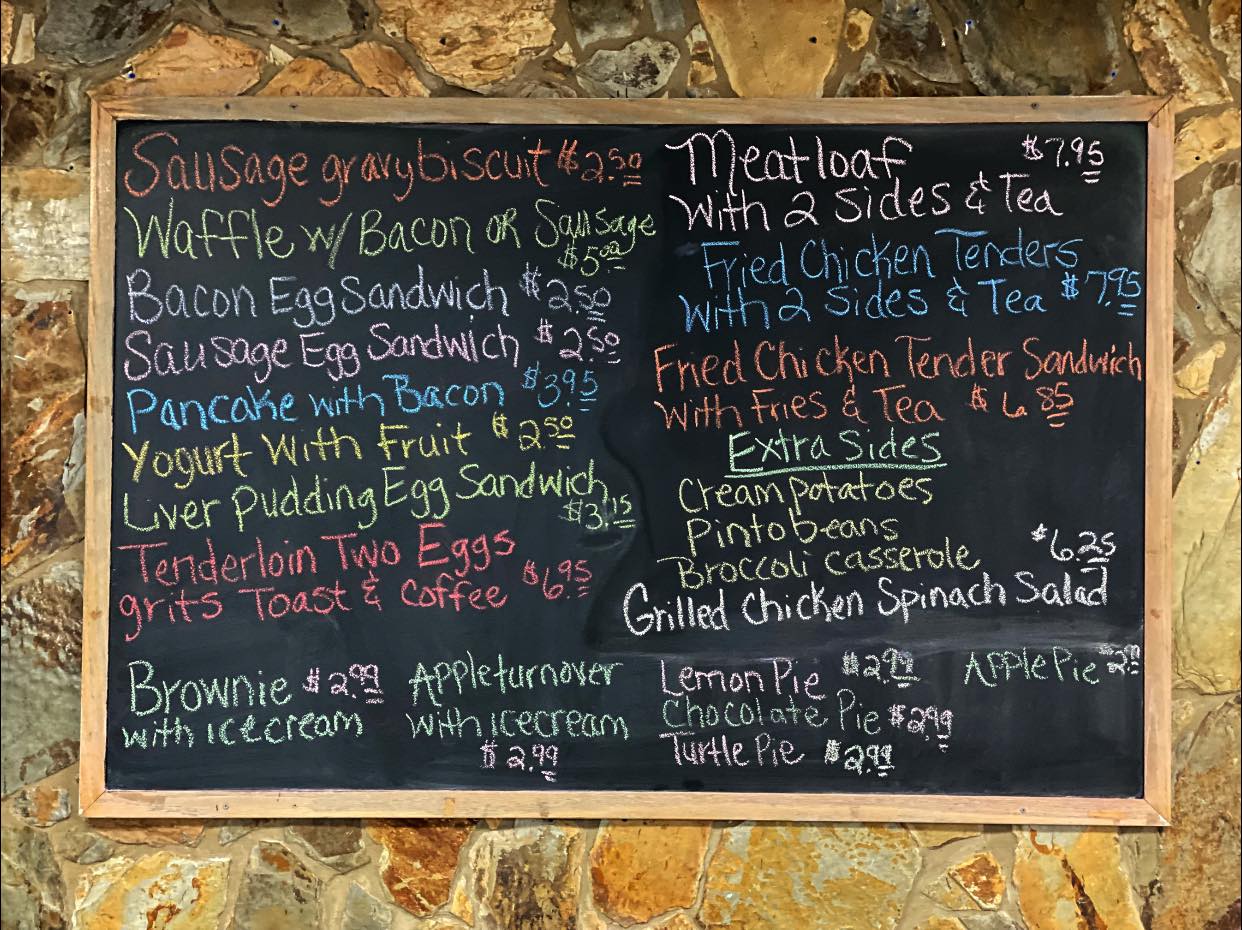 Sausage gravy biscuit $2.50
Waffle w/ Bacon or Sausage
$5.00
Bacon Egg Sandwich $2.50
Sausage Egg Sandwich $2.50
Pancake with Bacon $3.95
Yogurt With Fruit $2.50
Liver Pudding Egg Sandwich
$3.15
Tenderloin Two Eggs
grits Toast & Coffee $6.95
Brownie $2.99
with icecream
Apple turnover
with icecream
$2.99
Meatloaf $7.95
With 2 Sides & Tea
Fried Chicken Tenders
With 2 Sides & Tea $7.95
Fried Chicken Tender Sandwich
With Fries & Tea $6.85
Extra Sides
Cream potatoes
Pinto beans
Broccoli casserole
$6.25
Grilled Chicken Spinach Salad
Lemon Pie $2.99
Chocolate Pie $2.99
Turtle Pie $2.99
Apple Pie $2.99